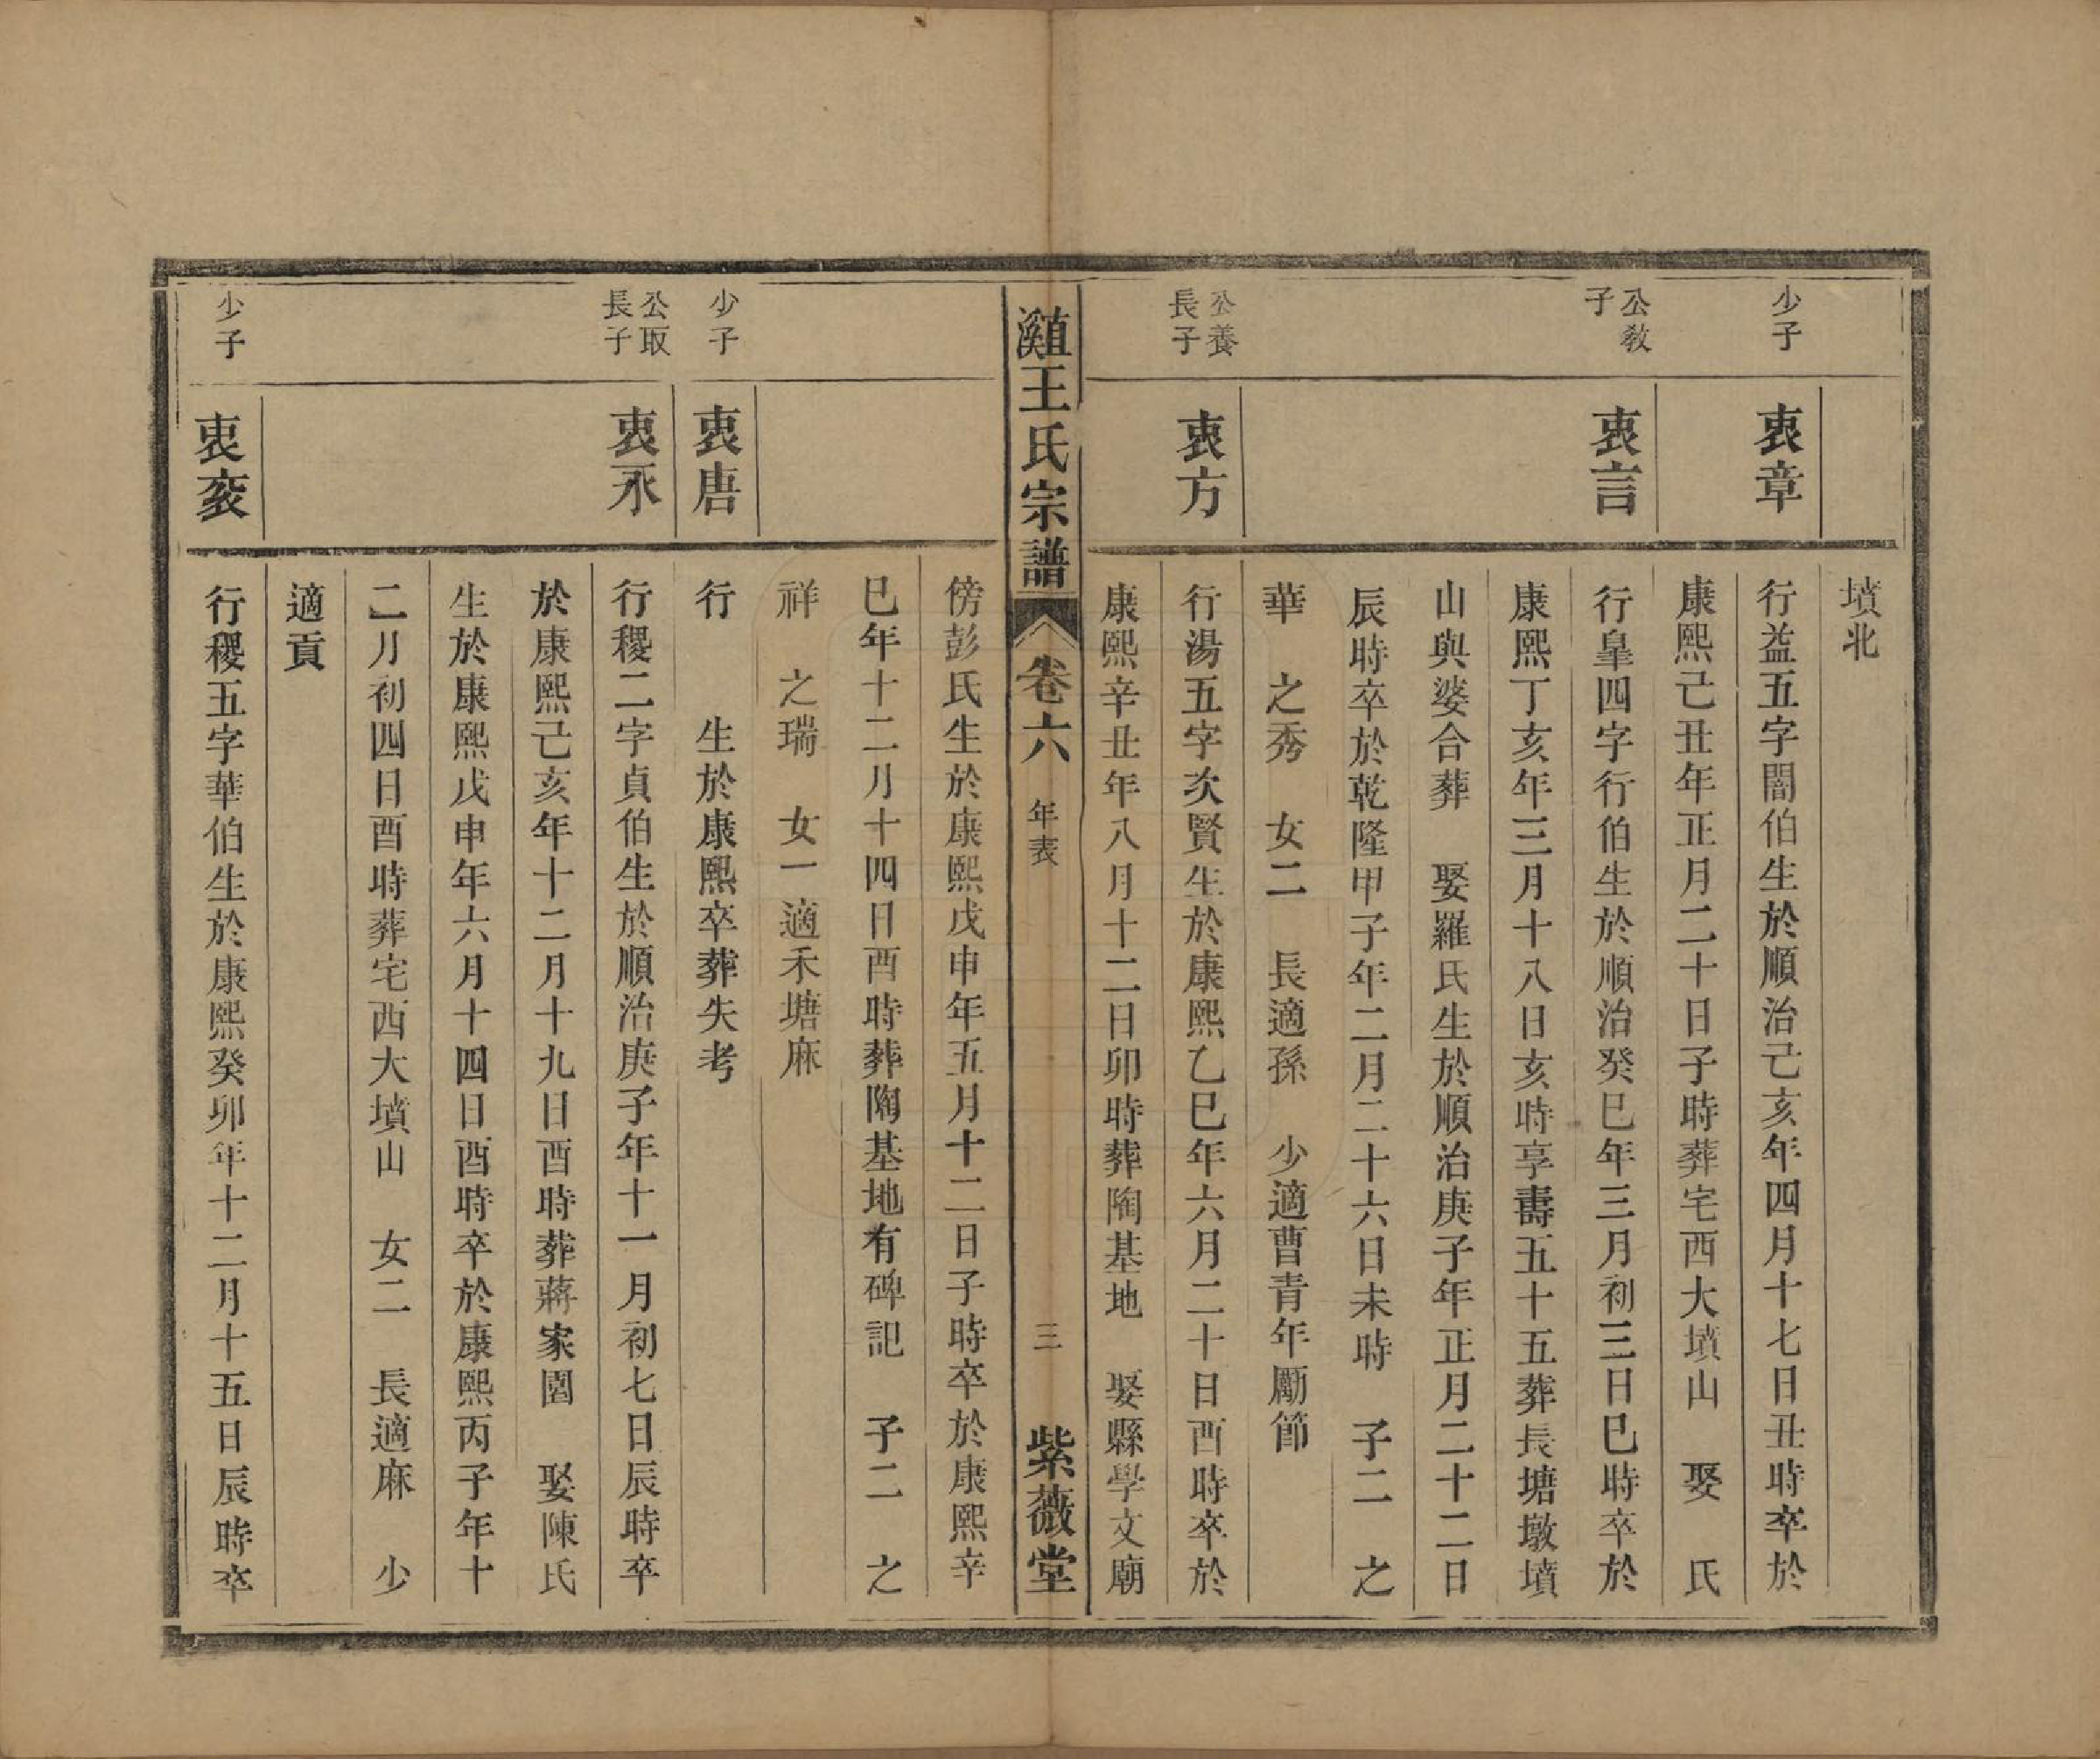 墳北
少子
衷章
行益五字闇伯生於順治己亥年四月十七日丑時卒於
康熙己丑年正月二十日子時葬宅西大墳山　娶　氏
公敎
子
衷言
行皐四字行伯生於順治癸巳年三月初三日巳時卒於
康熙丁亥年三月十八日亥時享壽五十五葬長塘墩墳
山與婆合葬　娶羅氏生於順治庚子年正月二十二日
辰時卒於乾隆甲子年二月二十六日未時　子二　之
華　之秀　女二　長適孫　少適曹青年勵節
公養
長子
衷方
行湯五字次賢生於康熙乙巳年六月二十日酉時卒於
康熙辛丑年八月十二日卯時葬陶基地　娶縣學文廟
王氏宗譜
卷六
年表
三
紫薇堂
傍彭氏生於康熙戊申年五月十二日子時卒於康熙辛
巳年十二月十四日酉時葬陶基地有碑記　子二　之
祥　之瑞　女一適禾塘麻
少子
衷唐
行　　生於康熙卒葬失考
公取
長子
衷永
行稷二字貞伯生於順治庚子年十一月初七日辰時卒
於康熙己亥年十二月十九日酉時葬蔣家園　娶陳氏
生於康熙戊申年六月十四日酉時卒於康熙丙子年十
二月初四日酉時葬宅西大墳山　女二　長適麻　少
適貢
少子
衷袤
行稷五字華伯生於康熙癸卯年十二月十五日辰時卒